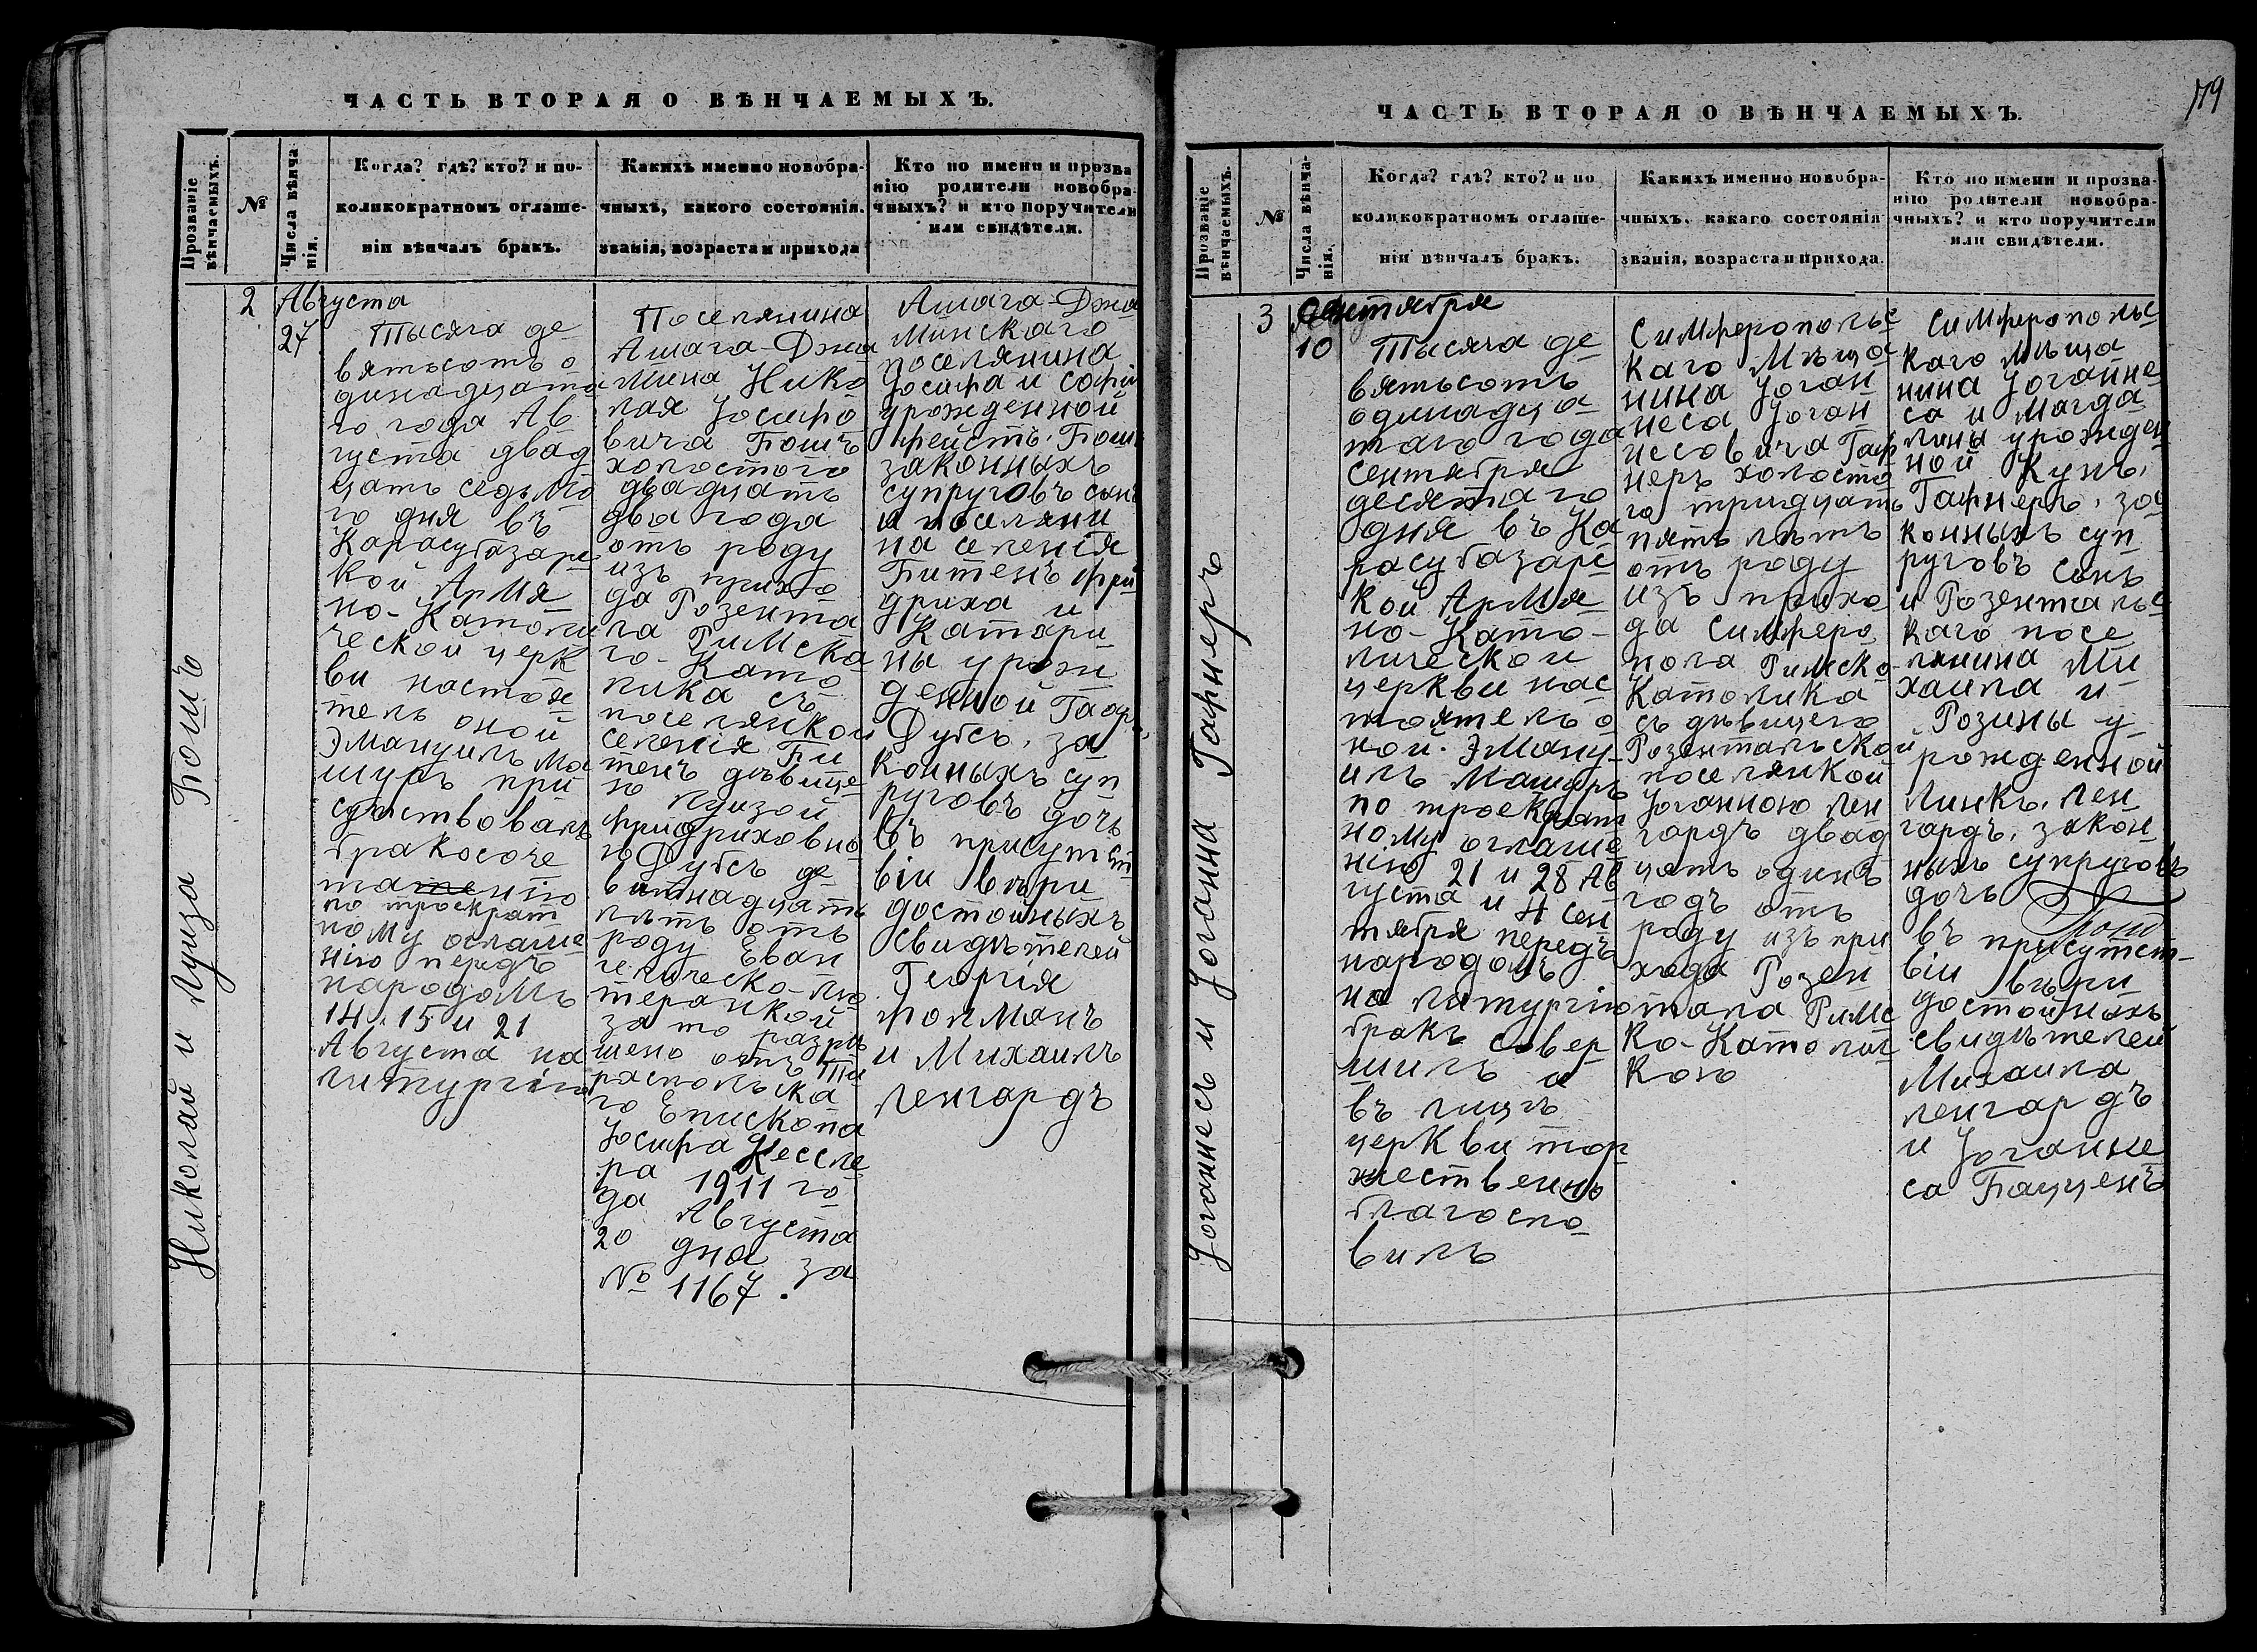 ЧАСТЬ ВТОРАЯ О ВѢНЧАЕМЫХЪ.
Прозваніе
вѣнчаемыхъ.
№
Числа вѣнча
нія.
Когда? гдѣ? кто? и по-
коликократномъ оглаше-
ніи вѣнчалъ бракъ.
Какихъ именно новобра-
чныхъ, какого состоянія.
званія, возраста и прихода
Кто по имени и прозва
нію родители новобра
чныхъ? и кто поручители
или свидѣтели.
Николай и Луиза Бошъ
2
Августа
27
Тысяча де
вятьсотъ о
динадцата
го года Ав
густа двад
цать седьмо
го дня въ
Карасубазарс
кой Армя
но-Католи
ческой церк
ви настоя
тель оной
Эмануилъ Ма
шуръ при
сутствовалъ
бракосоче
танію
по троекрат
ному оглаше
нію передъ
народомъ
14. 15 и 21
Августа на
литургіи
Поселянина
Ашага-Джа
мина Нико
лая Іосифо
вича Бошъ
холостого
двадцать
два года
отъ роду
изъ прихо
да Розента
ла Римска
го-Като
лика съ
поселянкой
селенія Би
тенъ дѣвице
ю Луизой
Фридриховно
ю Дубсъ де
вятнадцать
лѣтъ отъ
роду Еван
гелическо-лю
теранкой
за то разрѣ
шено отъ Ти
распольска
го Епископа
Іосифа Кессле
ра 1911 го
да Августа
20 дня за
№ 1167.
Ашага-Джа
минскаго
поселянина
Іосифа и Софіи
урожденной
Фейстъ. Бошъ
законныхъ
супруговъ сынъ
и поселяни
на селенія
Битенъ Фри
дриха и
Катари
ны урож
денной Гаар.
Дубсъ, за
конныхъ суп
руговъ дочь
въ присутст
віи вѣри
достойныхъ
свидѣтелей
Георгія
Фолманъ
и Михаилъ
Ленгардъ
179
ЧАСТЬ ВТОРАЯ О ВѢНЧАЕМЫХЪ.
Прозваніе
вѣнчаемыхъ.
№
Числа вѣнча-
нія.
Когда? гдѣ? кто? и по
коликократномъ оглаше-
ніи вѣнчалъ бракъ.
Какихъ именно новобра-
чныхъ. какаго состоянія
званія, возраста и прихода.
Кто по имени и прозва-
нію родители новобра-
чныхъ? и кто поручители
или свидѣтели.
Іоганнесъ и Іоганна Гафнеръ
3
Сентября
10
Тысяча де
вятьсотъ
одинадца
таго года
сентября
десятаго
дня въ Ка
расубазарс
кой Армя
но-Като-
лической
церкви нас
тоятель о
ной. Эману
илъ Машуръ
по троекрат
ному оглаше
нію 21 и 28 Ав
густа и 4 Сен
тября передъ
народомъ
на литургію
бракъ совер
шилъ и
въ лицѣ
церкви тор
жественно
благосло
вилъ
Симферопольс
каго Мѣща
нина Іоган
неса Іоган
несовича Гаф
неръ холосто
го тридцать
пять лѣтъ
отъ роду
изъ прихо
да Симферо
пола Римско-
Католика
съ дѣвицею
Розентальской
поселянкой
Іоганною Лен
гардъ двад
цать одинъ
годъ отъ
роду изъ при
хода Розен
тала Римс
ко-Католич
кою
Симферопольс
каго Мѣща
нина Іоганне
са и Магда
лины урожден
ной Кунъ,
Гафнеръ, за
конныхъ суп
руговъ сынъ
и Розентальс
каго посе
лянина Ми
хаила и
Розины у
рожденной
Линкъ. Лен
гардъ, закон
ныхъ супруговъ
дочь
въ присутст-
віи вѣри
достойныхъ
свидѣтелей
Михаила
Ленгардъ
и Іоганне
са Бацценъ